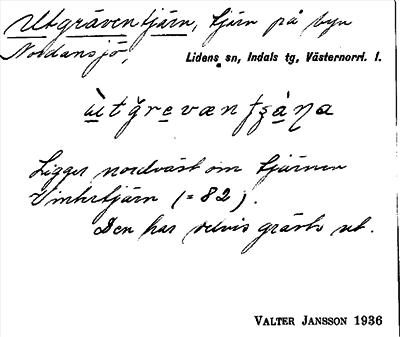 Utgräventjärn, tjärn på byn
Nordansjö,
Lidens sn, Indals tg, Västernorrl. l.
ùtgrevænʈʂàɳa
Ligger nordväst om tjärnen
Vintertjärn (=82).
Den har delvis grävts ut.
VALTER JANSSON 1936